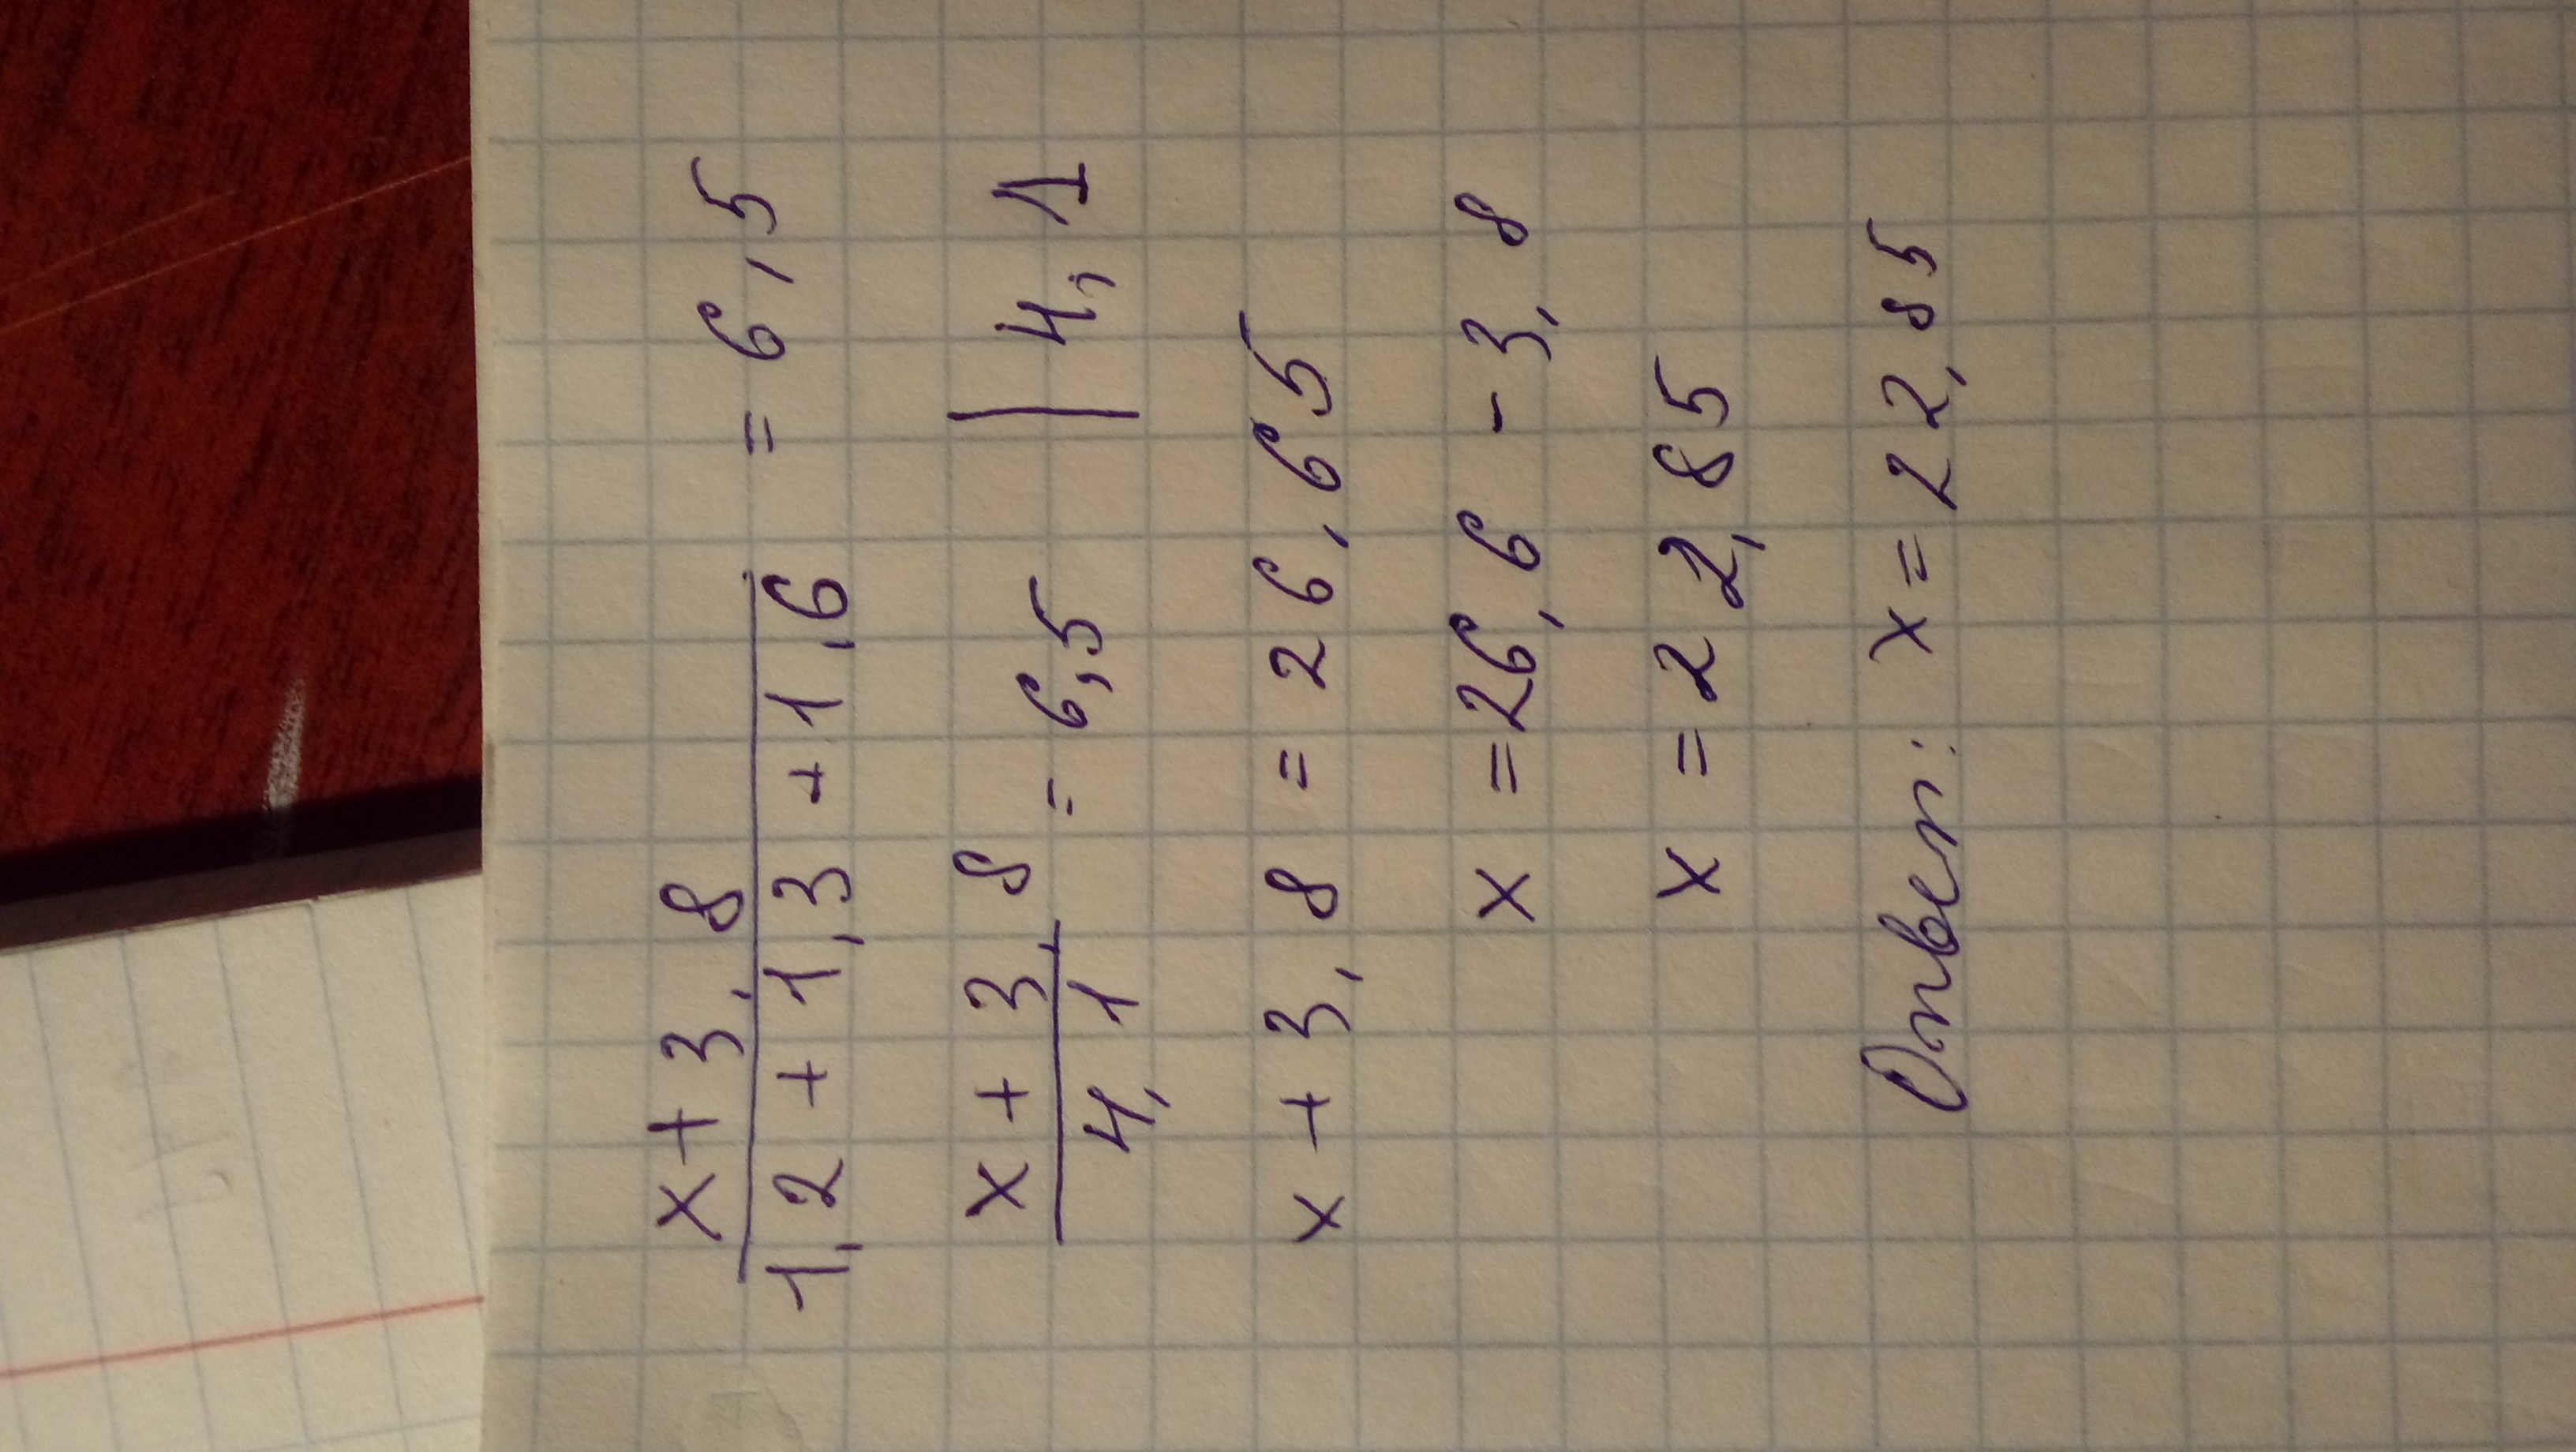 x+3,8 / 1,2+1,3+1,6 = 6,5
x+3,8 / 4,1 = 6,5 | 4,1
x+3,8=26,65
x=26,6-3,8
x=22,85
Ответ: x=22,85